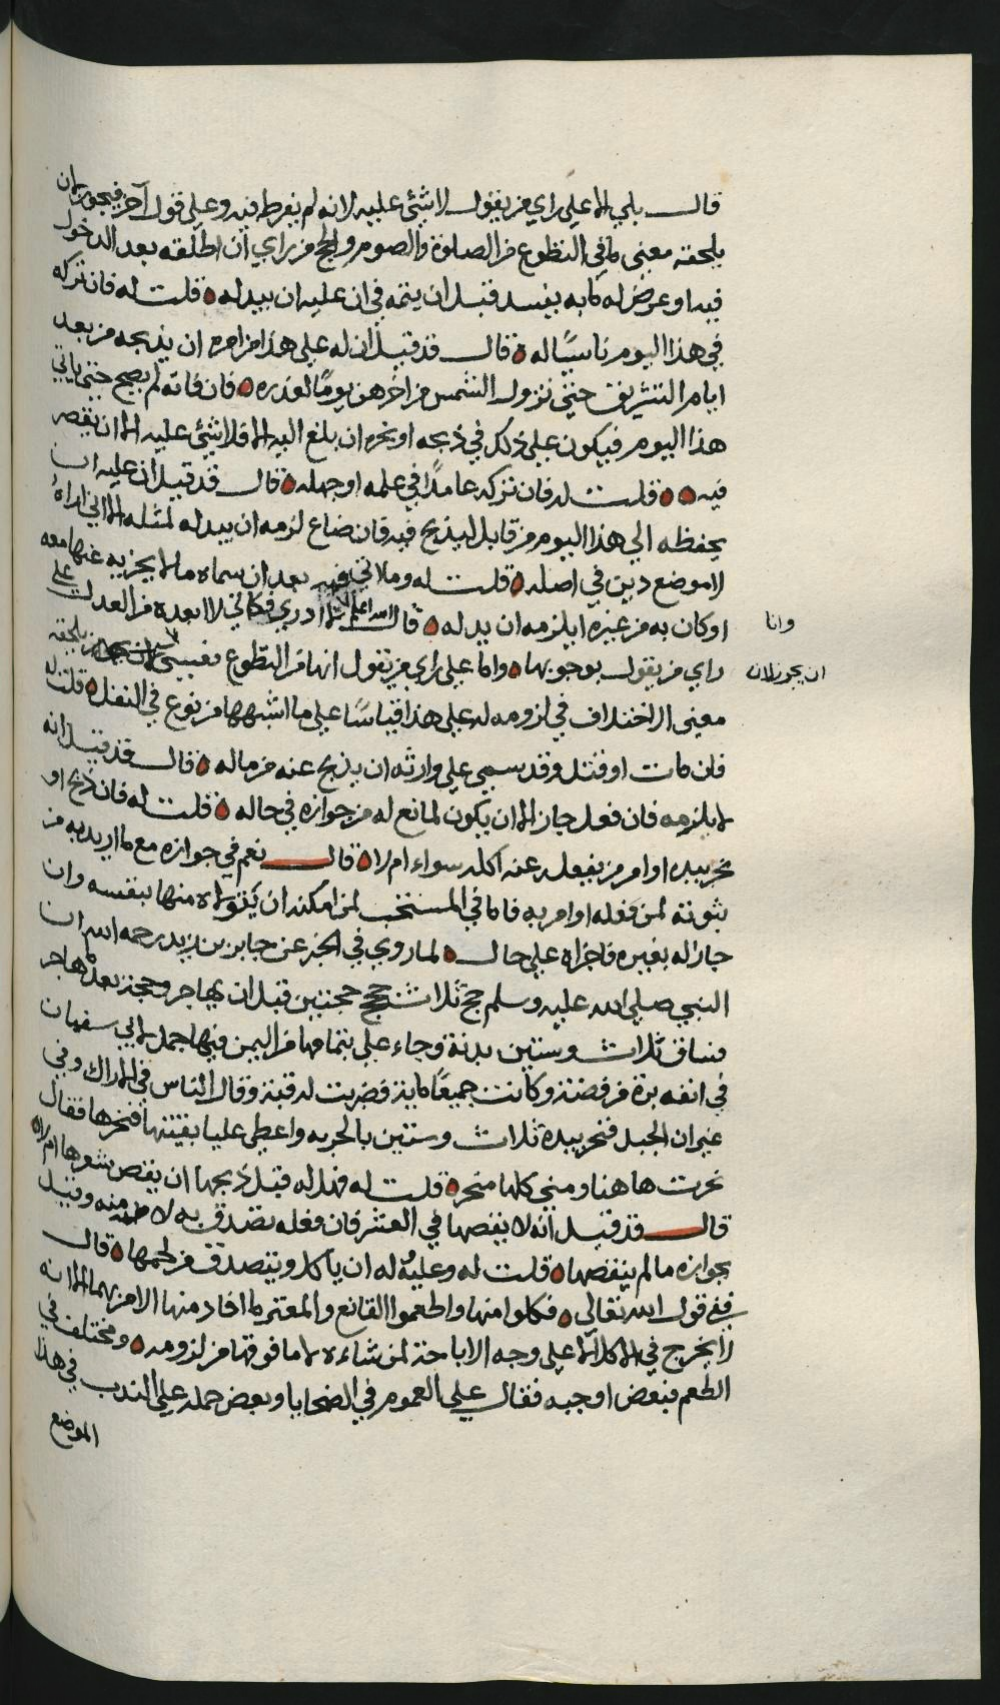 قال بلي الا علي راي من يقول لا شئ عليه لانه لم يفرط فيه وعلي قول آخر فيجوز لان
يلحقه معني ما في التطوع من الصلوة والصوم والحج من راي ان اطلقه بعد الدخول
فيه او عرض له ما به يفسد قبل ان يتمه في ان عليه ان يبدله قلت له فان تركه
في هذا اليوم ناسيًا له قال قد قيل ان له علي هذا من امره ان يذبحه من بعد
ايام التشريق حتي تزول الشمس من اخرهن يومًا لعذره فان فاته لم يصح حتي ياتي
هذا اليوم فيكون علي ذلك في ذبحه او نحره ان بلغ اليه والا فلا شئ عليه الا ان يقصر
فيه قلت له فان تركه عامدًا في علمه او جهله قال قد قيل ان عليه ان
يحفظه الي هذا اليوم من قابل ليذبح فيه فان ضاع لزمه ان يبدله لمثله الا الي اداه
لا موضع دين في اصله قلت له وما لا بعد ان سماه ما لا يجزيه عنها معه
او كان به من غيره ايلزمه ان يبدله قال الله اعلم وانا لا ادري فكاني لا ابعده من العدل علي
راي من يقول بوجوبها واما علي راي من يقول انها من التطوع فعسي ان يجوز لان يلحقه
معني الاختلاف في لزومه له علي هذا قياسًا علي ما اشبهها من نوع في النفل قلت له
فان مات او قتل وقد سمي علي وارثه ان يذبح عنه من ماله قال قد قيل انه
لا يلزمه فان فعل جاز الا ان يكون لمانع له من جوازه في حاله قلت له فان ذبح او
نحر بيده او امر من يفعله عنه اكله سواء ام لا قال نعم في جوازه مع ما اريد به من
ثبوته لمن فعله او امر به فاما في المستحب لمن امكنه ان يتولاه منها بنفسه وان
جاز له بغيره فاجزاه علي حال لما روي في الخبر عن جابر بن زيد رحمه الله ان
النبي صلي الله عليه وسلم حج ثلاث حجج حجتين قبل ان يهاجر وحجة بعد ما هاجر
فساق ثلاث وستين بدنة وجاء علي بتمامها من اليمن فيها جمل لابي سفيان
في انفه برة من فضة وكانت جميعًا مائة فضربت له قبة وقال الناس في الاراك وفي
غيران الجبل فنحر بيده ثلاث وستين بالحربه واعطي عليا بقيتها فنحرها فقال
نحرت هاهنا ومني كلها منحر قلت له فهل له قبل ذبحها ان يقص شعرها ام لا
قال قد قيل انه لا يقصها في العشر فان فعله تصدق به لا منه وقيل
بجوازه ما لم ينقصها قلت له وعليه له ان ياكل ويتصدق من لحمها قال
ففي قول الله تعالي فكلوا منها واطعموا القانع والمعتر ما افاد منها الامر بهما الا انه
لا يخرج في الاكل الا علي وجه الاباحة لمن شاءه لا ما فوقها من لزومه ومختلف في
الطعم فبعض اوجبه فقال علي العموم في الضحايا وبعض حمله علي الندب في هذا
الموضع
وانا
ان يجوز لان